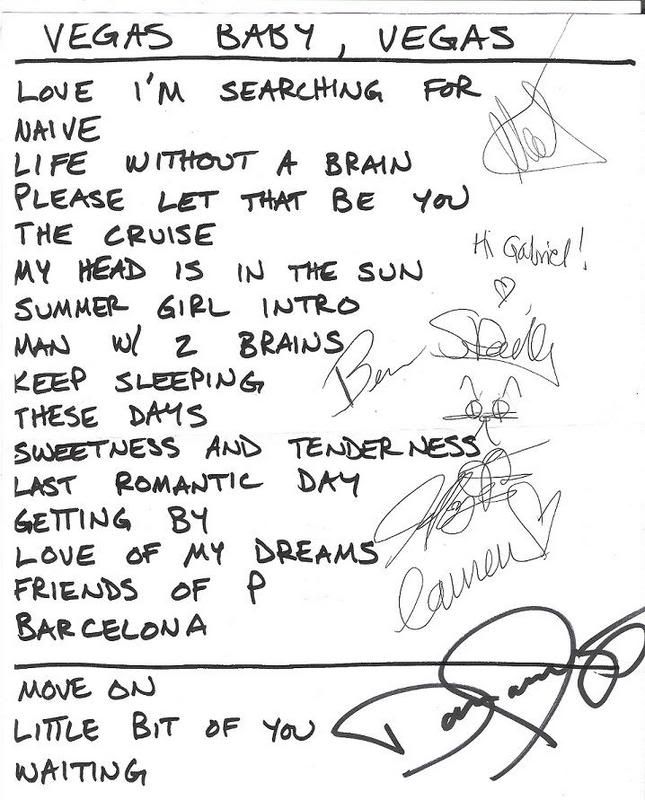 VEGAS BABY, VEGAS
LOVE I'M SEARCHING FOR
NAIVE
LIFE WITHOUT A BRAIN
PLEASE LET THAT BE YOU
THE CRUISE
Hi Gabriel!
MY HEAD IS IN THE SUN
SUMMER GIRL INTRO
MAN W/ 2 BRAINS
Ben
KEEP SLEEPING
THESE DAYS
SWEETNESS AND TENDERNESS
LAST ROMANTIC DAY
GETTING BY
LOVE OF MY DREAMS
Lauren
FRIENDS OF P
BARCELONA
MOVE ON
LITTLE BIT OF YOU
WAITING